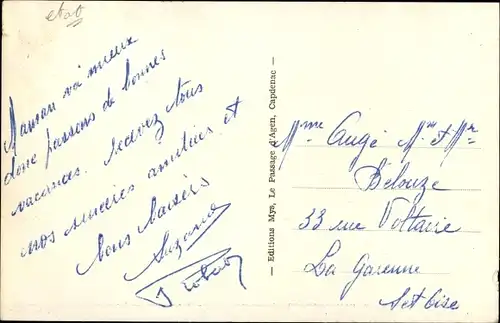 Maman va mieux
donc passons de bonnes
vacances. recevez tous
nos sincères amitiés et
bons baisers
Suzanne
— Editions Mys, Le Passage d'Agen, Capdenac —
Mme Augé Mme et Mr
Belouze
33 rue Voltaire
La Garenne
Set Oise